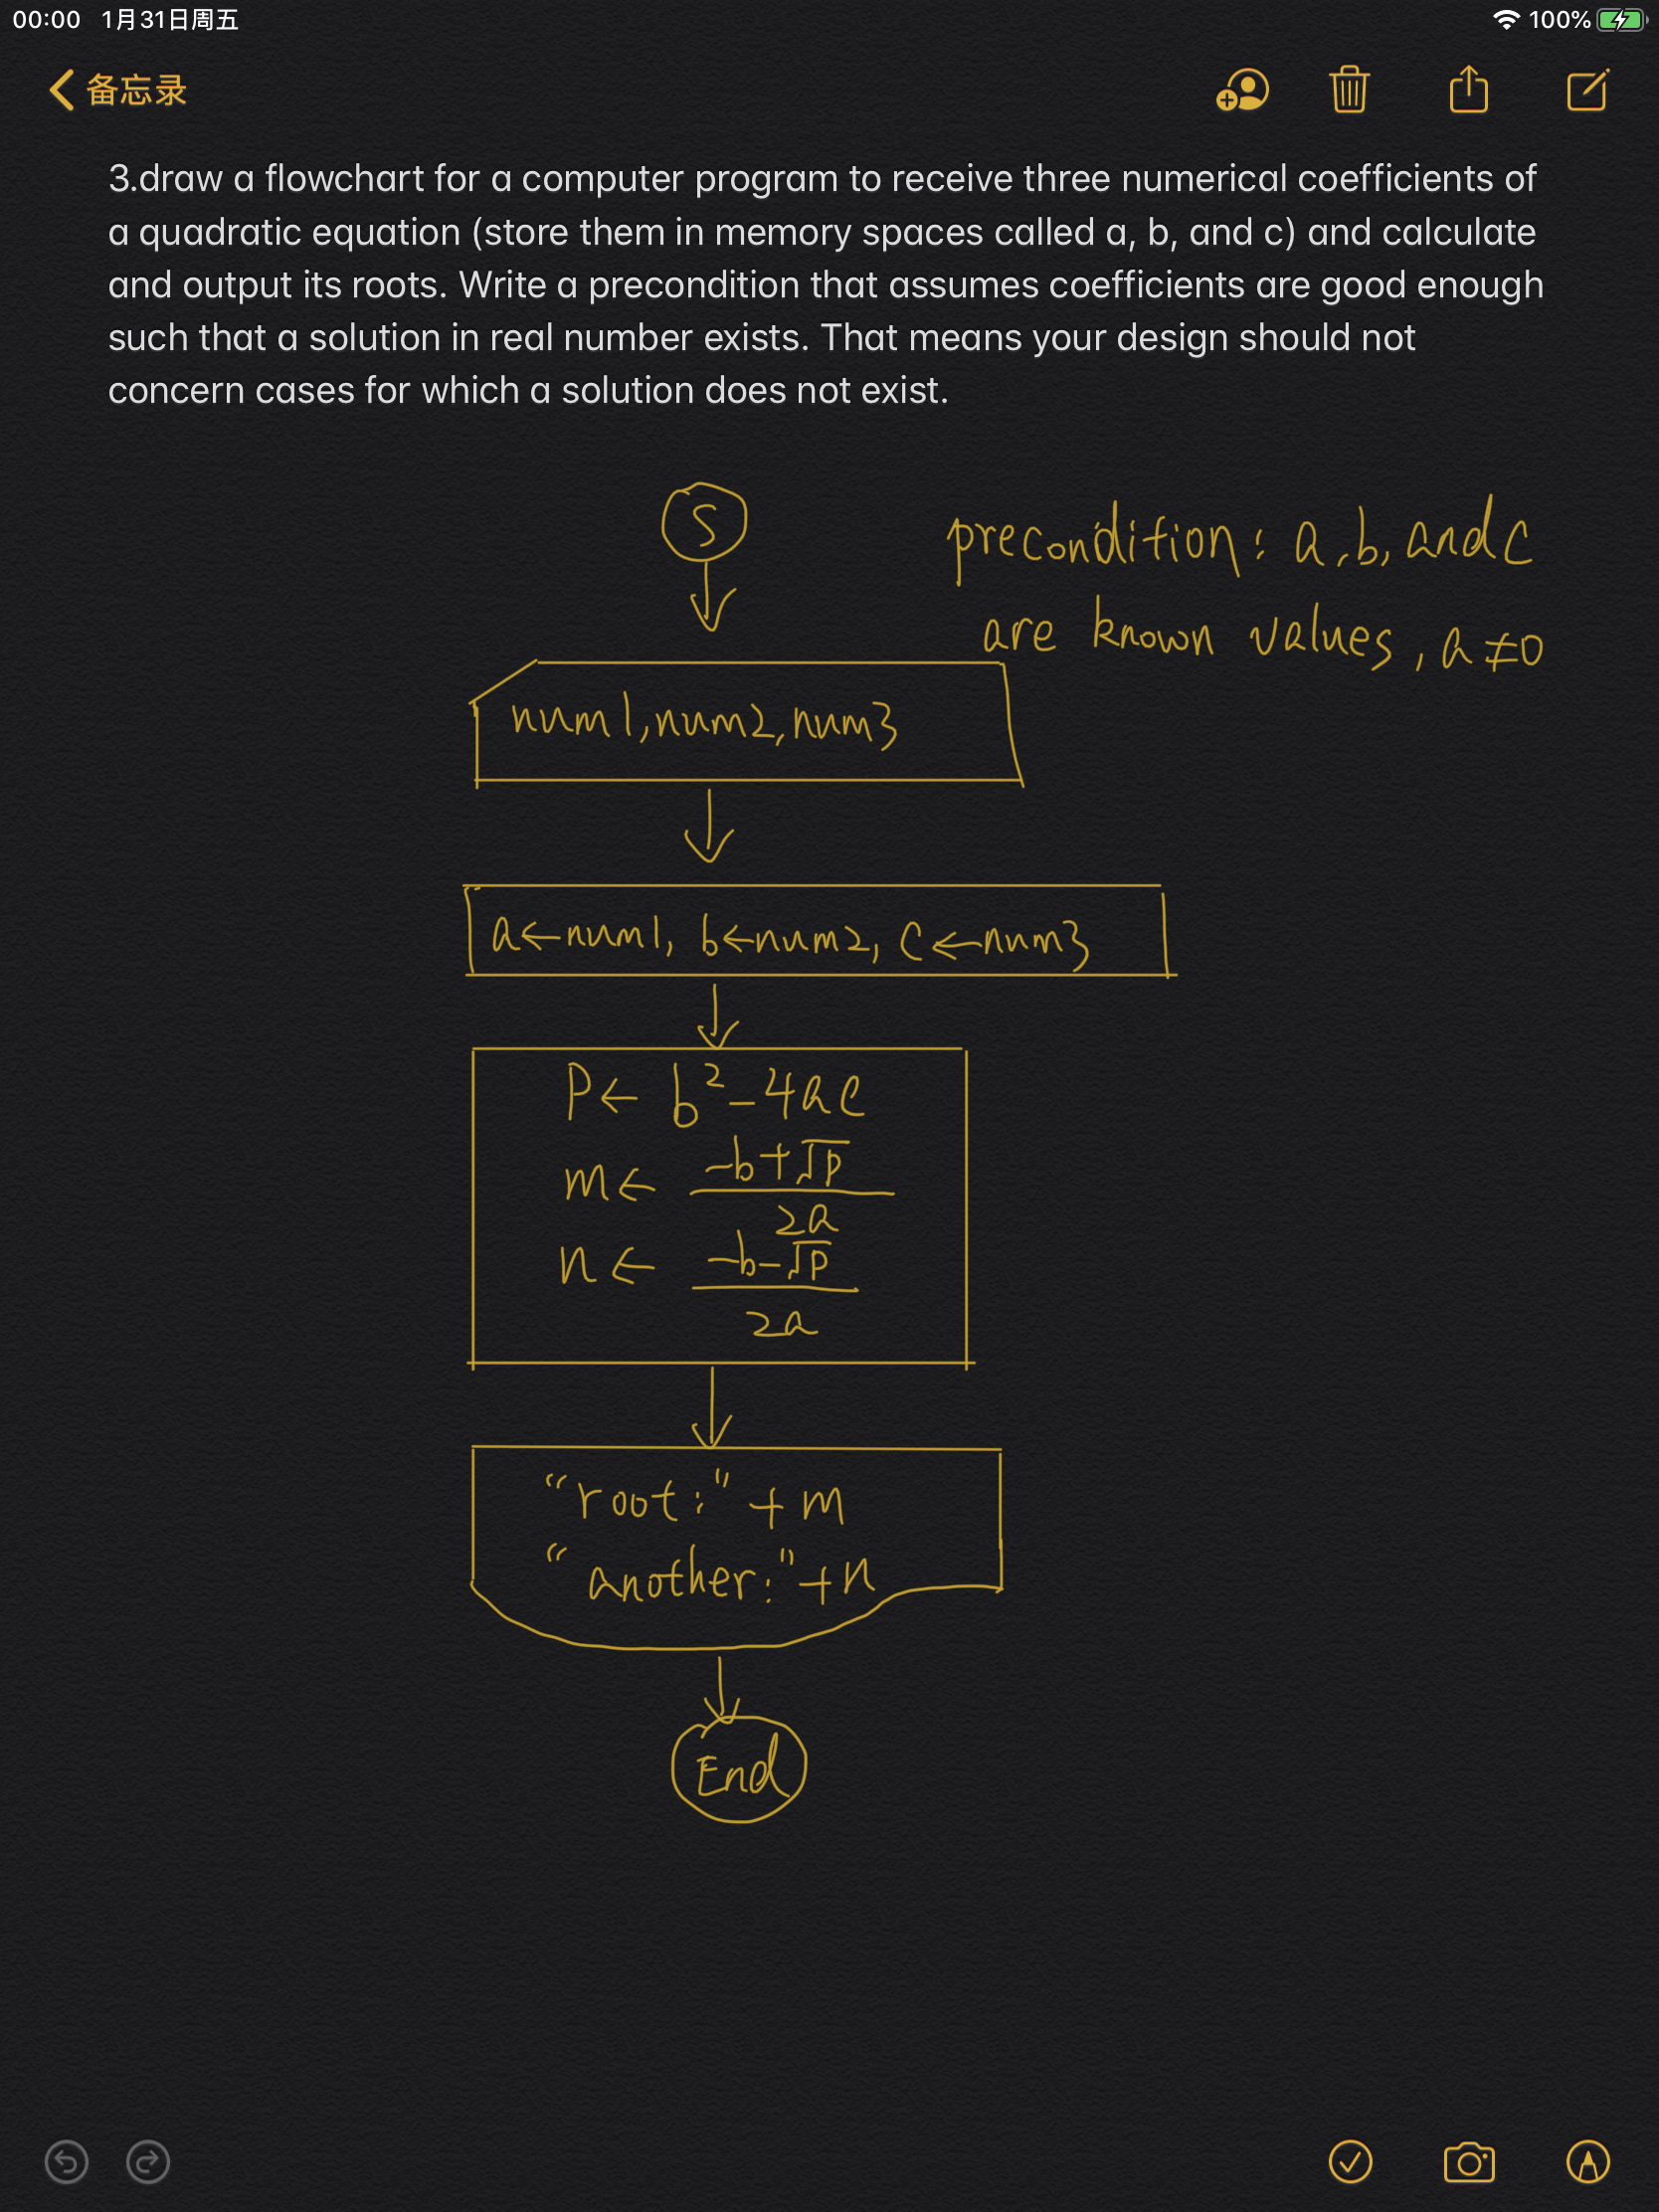 00:00 1月31日周五 100%
备忘录
3.draw a flowchart for a computer program to receive three numerical coefficients of
a quadratic equation (store them in memory spaces called a, b, and c) and calculate
and output its roots. Write a precondition that assumes coefficients are good enough
such that a solution in real number exists. That means your design should not
concern cases for which a solution does not exist.
S
precondition: a,b, and c
are known values, a≠0
num1,num2,num3
a←num1, b←num2, c←num3
P← b²-4ac
m← (-b+√p)/2a
n← (-b-√p)/2a
"root:"+m
"another:"+n
End